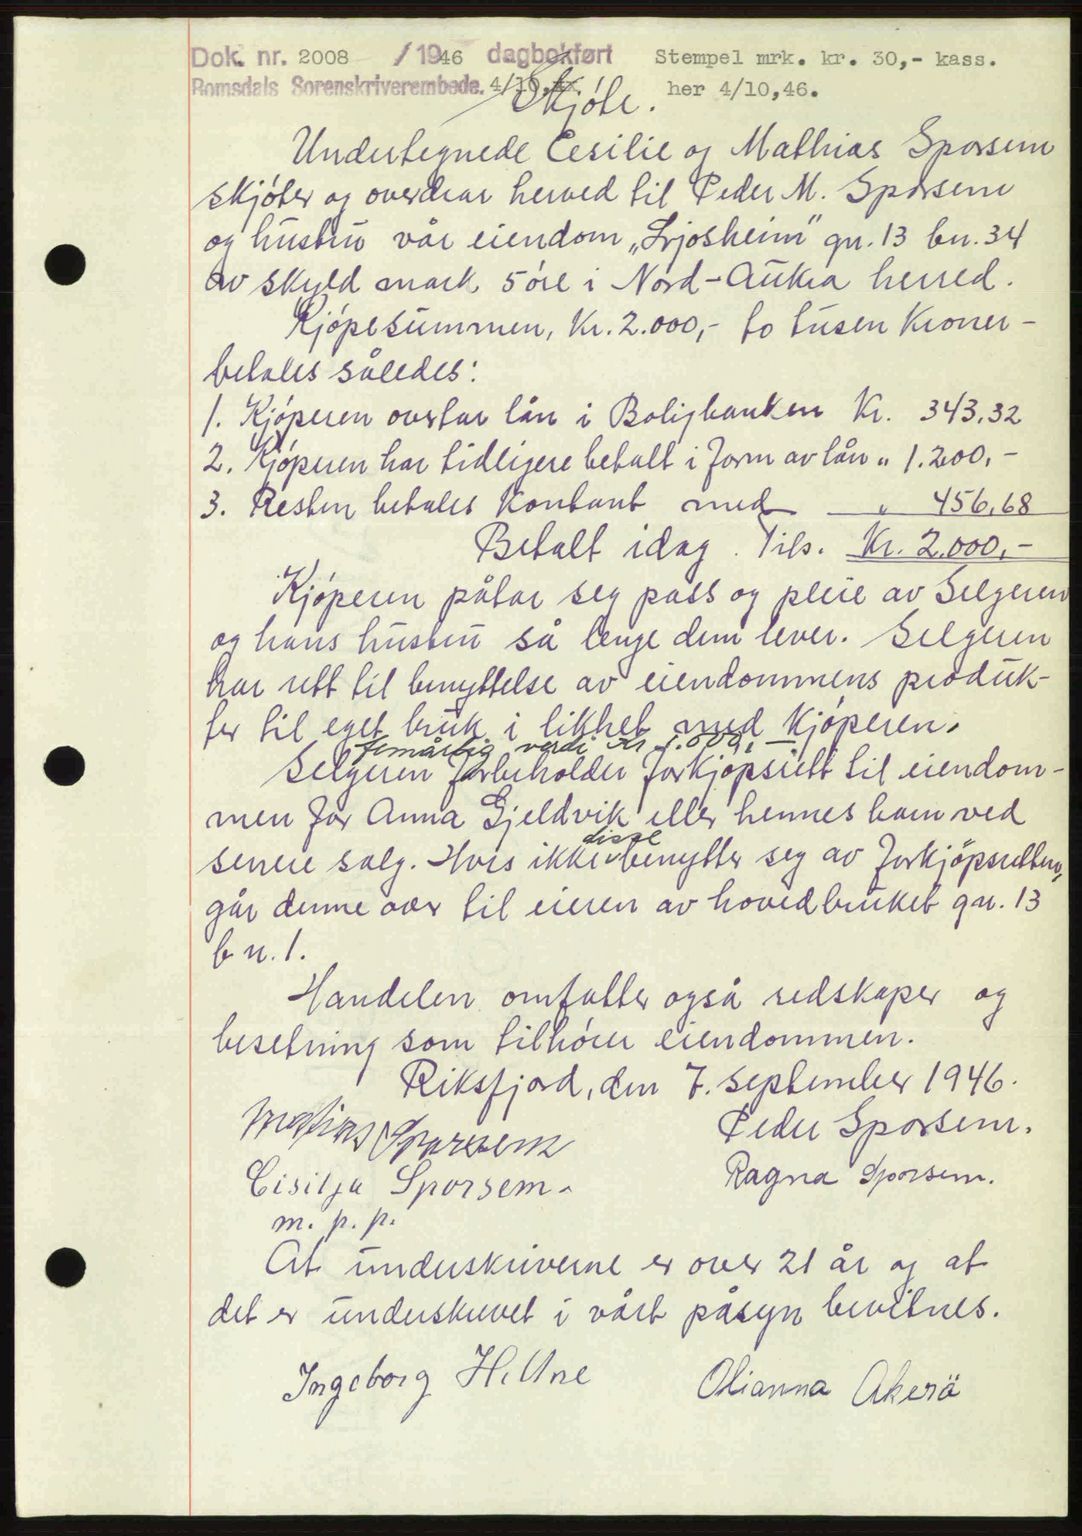 Dok. nr. 2008 / 1946 dagbokført Stempel mrk. kr. 30,- kass.
Romsdals Sorenskriverembede. 4/10,46. her 4/10,46.
Skjöte.
Undertegnede Cesilie og Mathias Sporsem
skjöter og overdrar herved til Peder M. Sporsem
og hustru vår eiendom „Ljosheim" gn. 13 bn. 34
av skyld mark 5 öre i Nord-Aukra herred.
Kjöpesummen, Kr. 2.000,- to tusen Kroner-
betales således:
1. Kjöperen overtar lån i Boligbanken Kr. 343,32
2. Kjöperen har tidligere betalt i form av lån „ 1.200,-
3. Resten betales kontant med „ 456,68
Betalt idag. Tils. Kr. 2.000,-
Kjöperen påtar seg pass og pleie av Selgeren
og hans hustru så lenge dem lever. Selgeren
har rett til benyttelse av eiendommens produk-
ter til eget bruk i likhet med Kjöperen.
femårlig verdi kr 1.000,-
Selgeren forbeholder forkjöpsrett til eiendom-
men for Anna Gjeldvik eller hennes barn ved
senere salg. Hvis ikke disse benytter seg av forkjöpsretten,
går denne over til eieren av hovedbruket gn. 13
bn. 1.
Handelen omfatter også redskaper og
besetning som tilhörer eiendommen.
Riksfjord, den 7. september 1946.
Mathias Sporsem Peder Sporsem.
Cisilja Sporsem. Ragna Sporsem.
m. p. p.
At underskriverne er over 21 år og at
det er underskrevet i vårt påsyn bevitnes.
Ingeborg H. Une Olianna Akerö